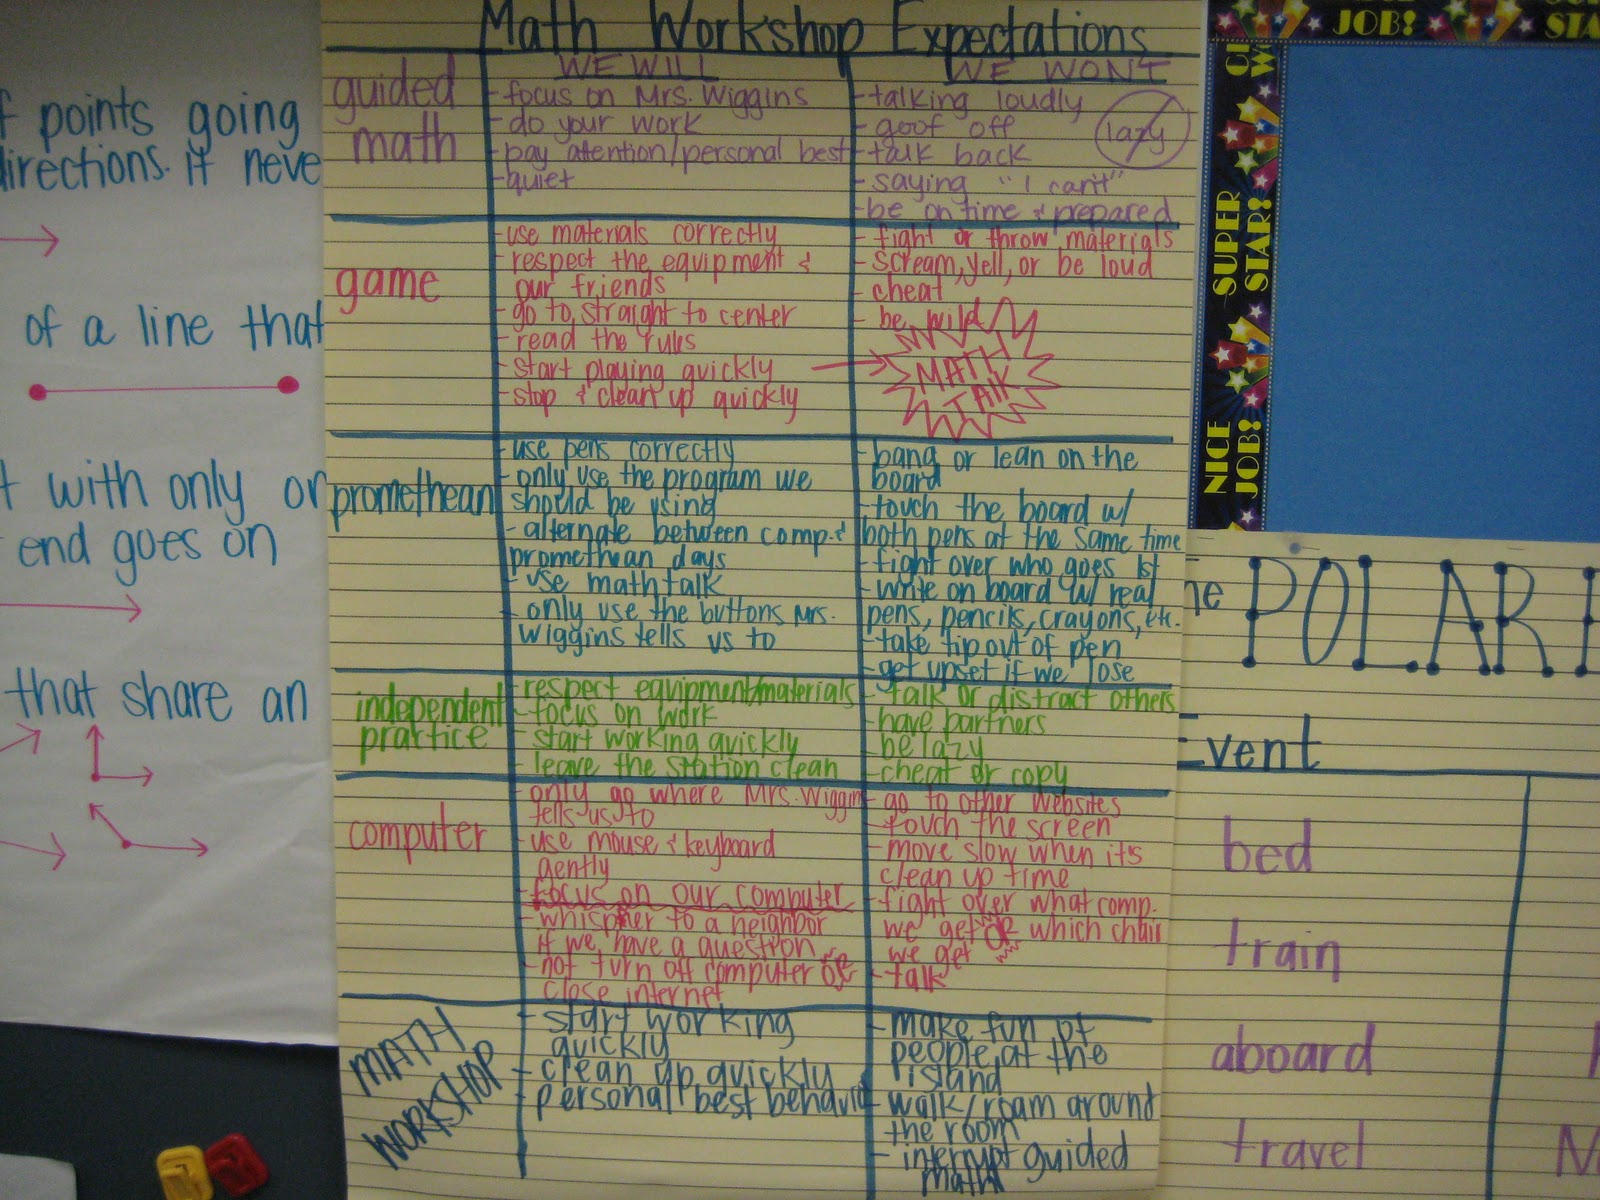 f points going
directions. it neve
of a line that
t with only on
end goes on
that share an
Math Workshop Expectations
WE WILL
WE WONT
guided
math
- focus on Mrs. Wiggins
- do your work
- pay attention/personal best
- quiet
- talking loudly
- goof off
- talk back
- saying "I can't"
- be on time & prepared
lazy
game
- use materials correctly
- respect the equipment &
our friends
- go to straight to center
- read the rules
- start playing quickly
- stop & clean up quickly
- fight or throw materials
- scream, yell, or be loud
- cheat
- be wild
MATH
TALK
promethean
- use pens correctly
- only use the program we
should be using
- alternate between comp. &
promethean days
- use math talk
- only use the buttons Mrs.
Wiggins tells us to
- bang or lean on the
board
- touch the board w/
both pens at the same time
- fight over who goes 1st
- write on board w/ real
pens, pencils, crayons, etc.
- take tip out of pen
- get upset if we lose
independent
practice
- respect equipment/materials
- focus on work
- start working quickly
- leave the station clean
- talk or distract others
- have partners
- be lazy
- cheat or copy
computer
- only go where Mrs. Wiggins
tells us to
- use mouse & keyboard
gently
- focus on our computer
- whisper to a neighbor
if we have a question
- not turn off computer or
close internet
- go to other websites
- touch the screen
- move slow when it's
clean up time
- fight over what comp.
we get or which chair
we get
- talk
MATH
WORKSHOP
- start working
quickly
- clean up quickly
- personal best behavior
- make fun of
people at the
island
- walk/roam around
the room
- interrupt guided
math
JOB!
STA
SUPER
STAR!
NICE
JOB!
he POLAR
Event
bed
train
aboard
travel